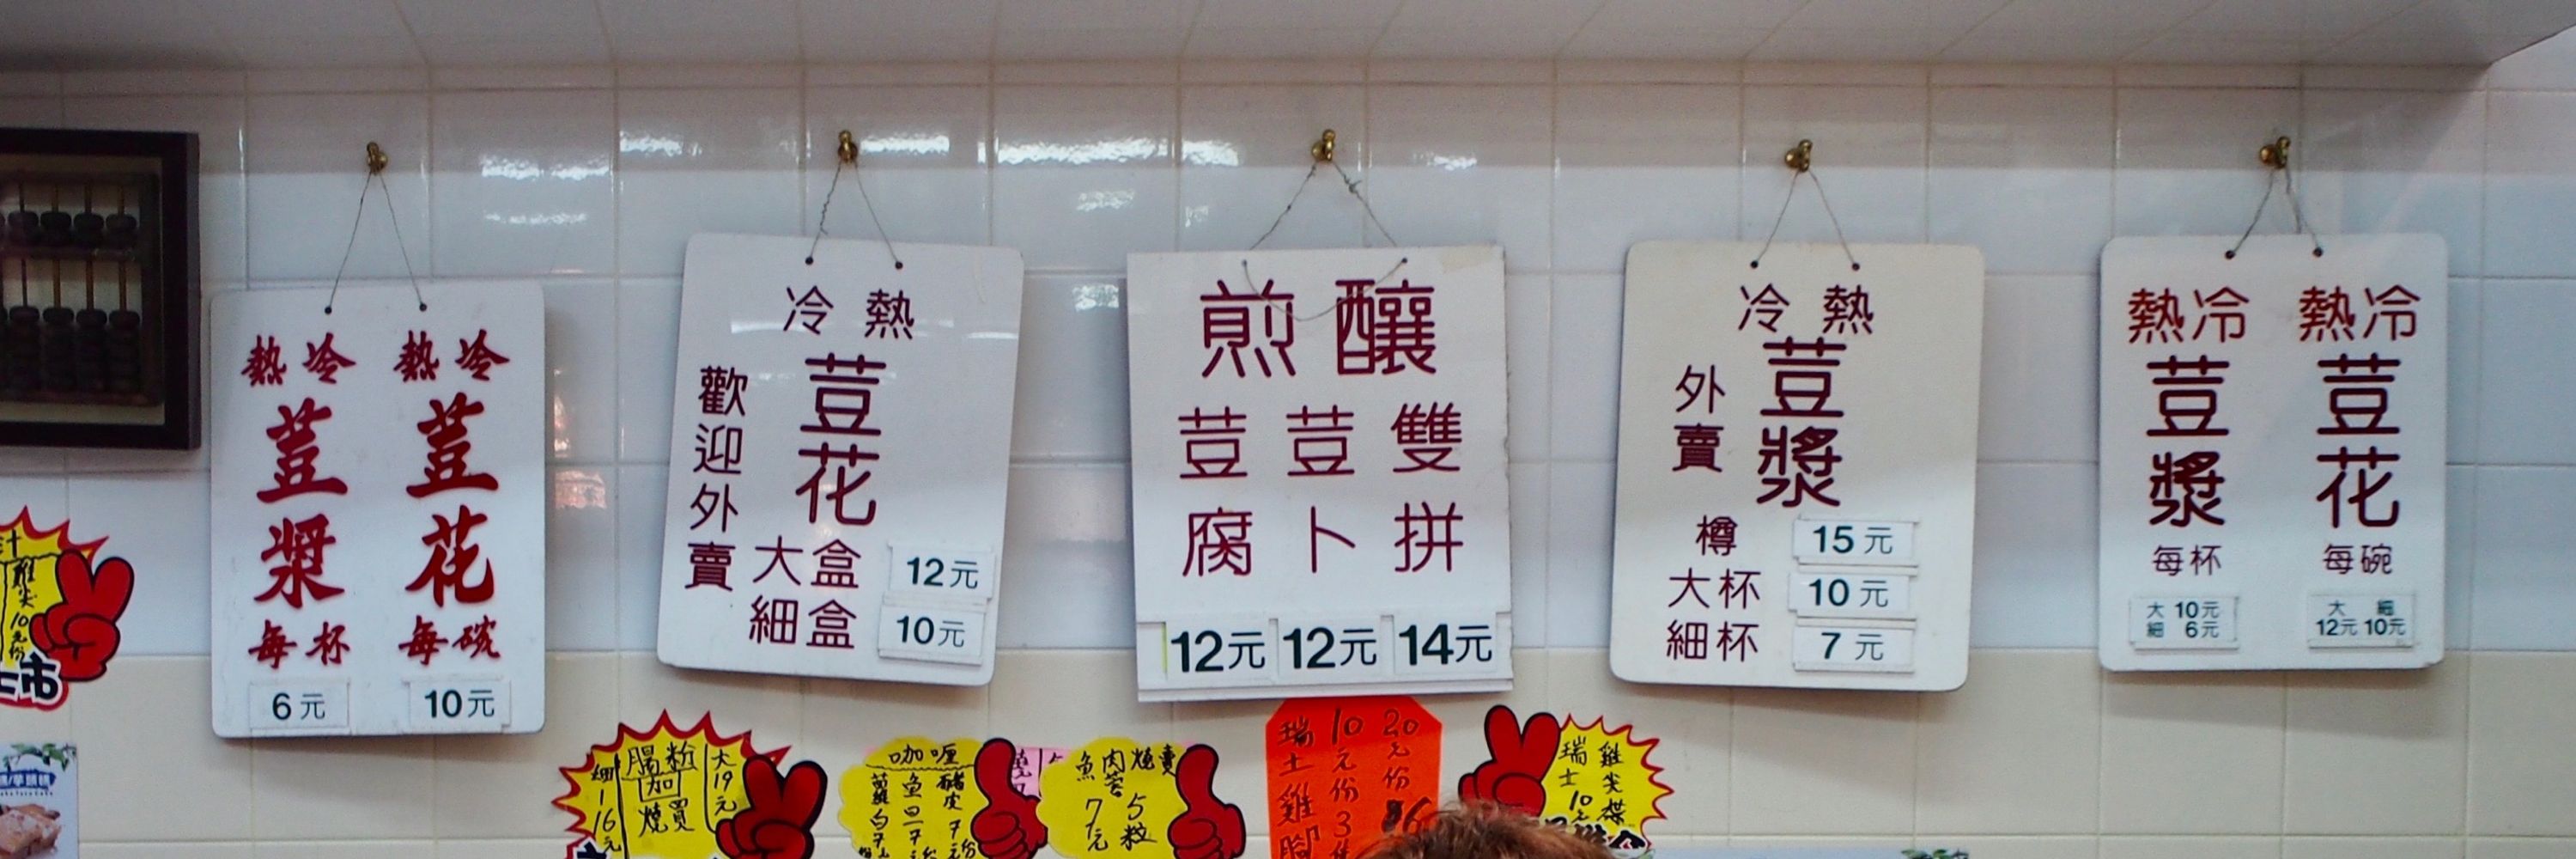 熱冷 熱冷
荳漿 荳花
每杯 每碗
6元 10元
冷熱
荳花
歡迎外賣
大盒 12元
細盒 10元
煎釀
荳腐 荳卜 雙拼
12元 12元 14元
冷熱
荳漿
外賣
樽 15元
大杯 10元
細杯 7元
熱冷 熱冷
荳漿 荳花
每杯 每碗
大 10元
細 6元
大 細
12元 10元
10元份
上市
腸粉
加
燒買
大19元
細16元
咖喱
魚旦7元份
豬皮7元份
魚肉燒賣
5粒
7元
瑞士雞腳
10元份3
20元份6
瑞士
雞尖
10元